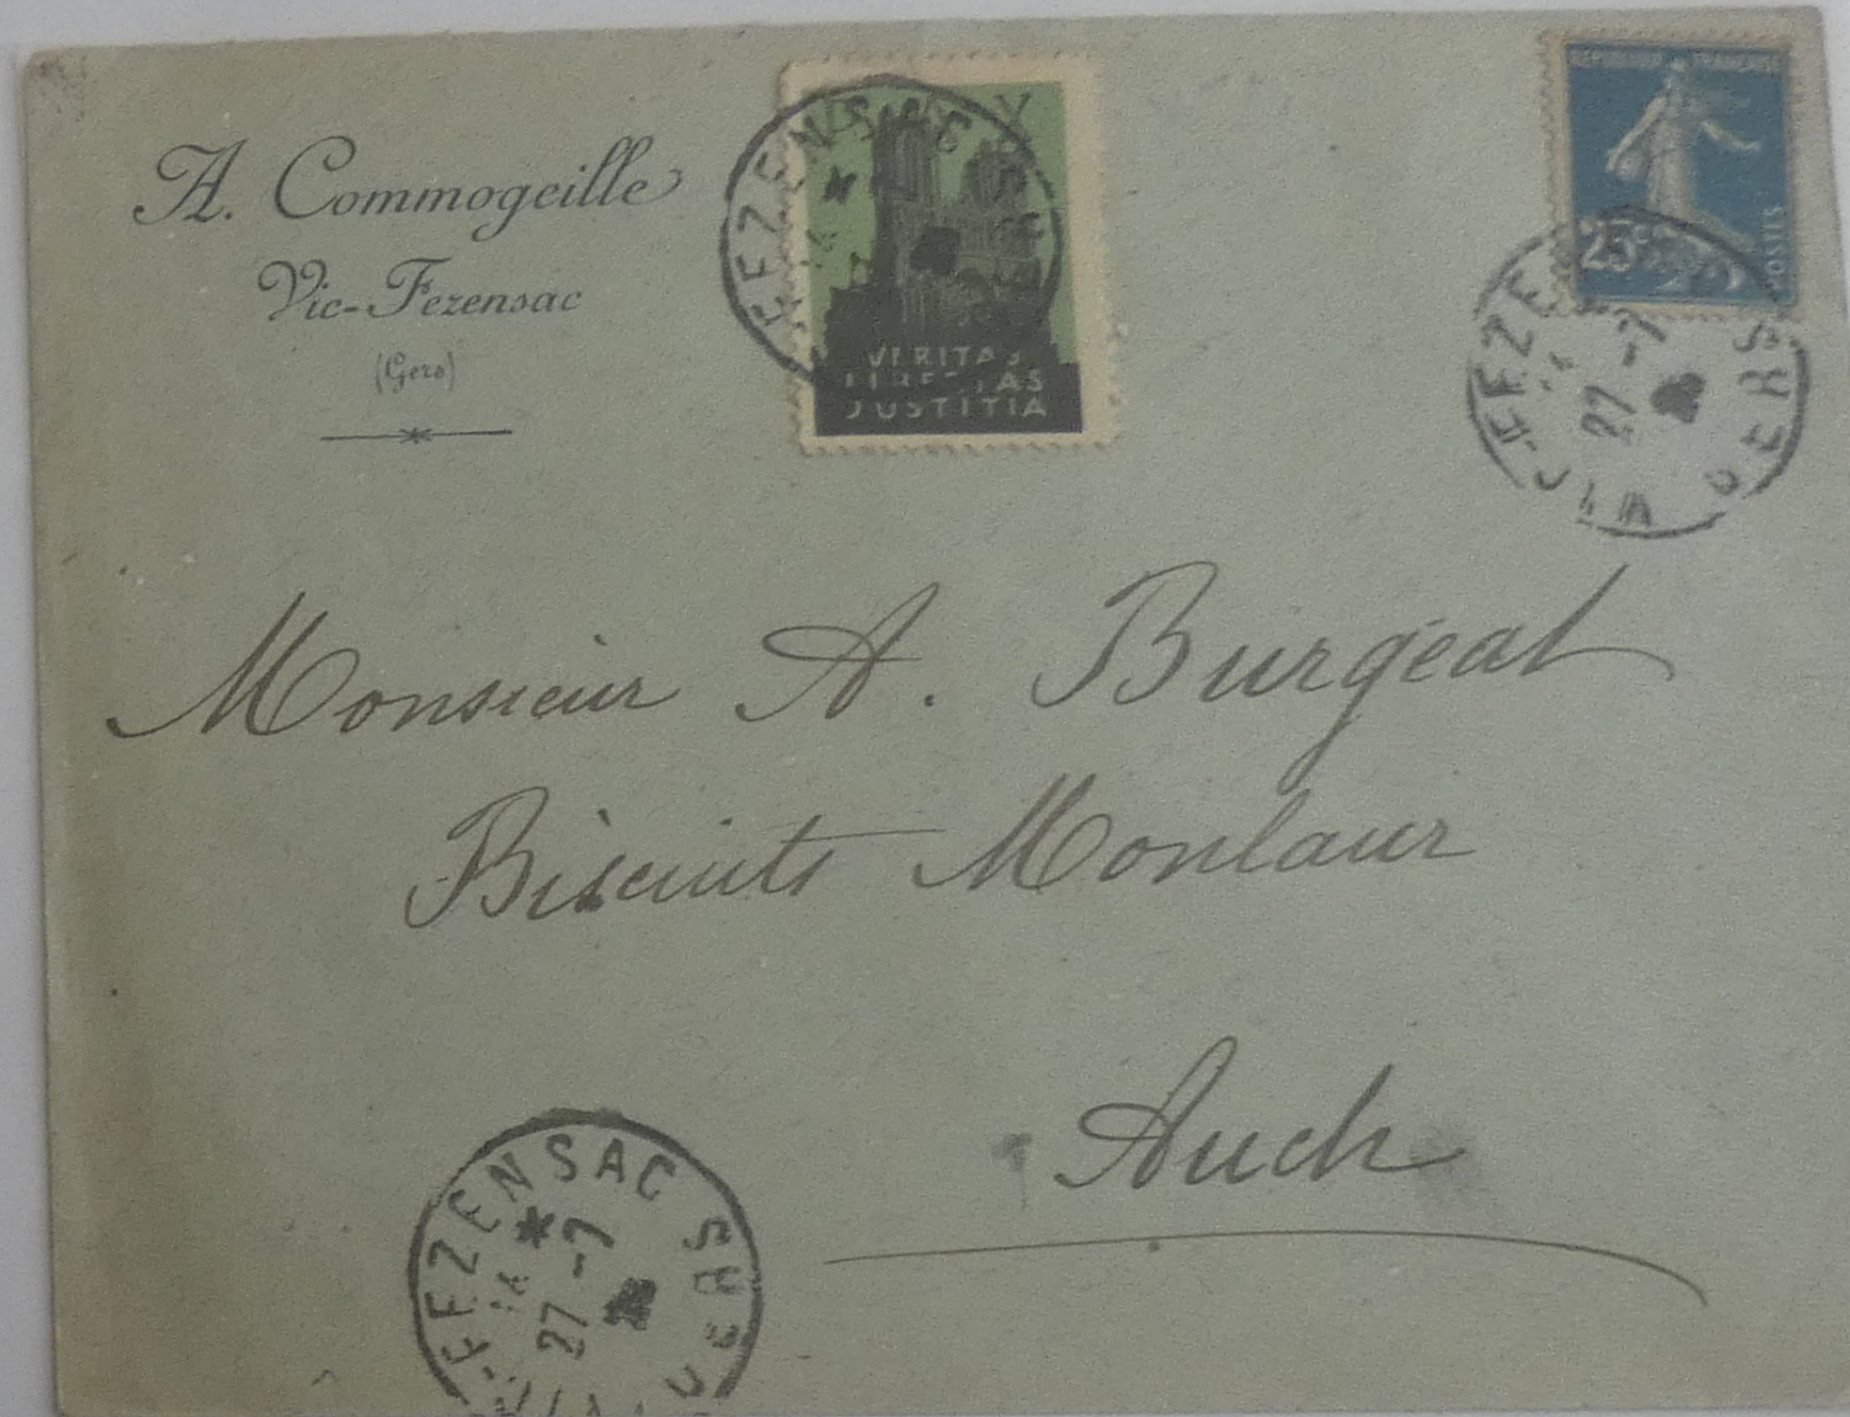 A. Commogeille
Vic-Fezensac
(Gers)
VERITAS
LIBERTAS
JUSTITIA
REPUBLIQUE FRANÇAISE
25c
POSTES
VIC-FEZENSAC GERS
27 -7
VIC-FEZE GERS
27 -7
Monsieur A. Burgeat
Biscuits Monlaur
Auch
VIC-FEZENSAC GERS
27 -7